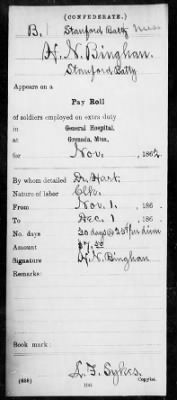 (CONFEDERATE.)
B. Stanford Batty Miss
H. N. Binghan.
Stanford Batty
Appears on a
Pay Roll
of soldiers employed on extra duty
in General Hospital,
at Grenada, Miss.,
for Nov., 1862
By whom detailed Dr. Hart.
Nature of labor Clk.
From Nov. 1. 186 .
To Dec. 1 186 .
No. days 30 days @ 25¢ per diem
Amount $7.50
Signature H. N. Binghan
Remarks:
Book mark:
L. F. Sykes.
Copyist.